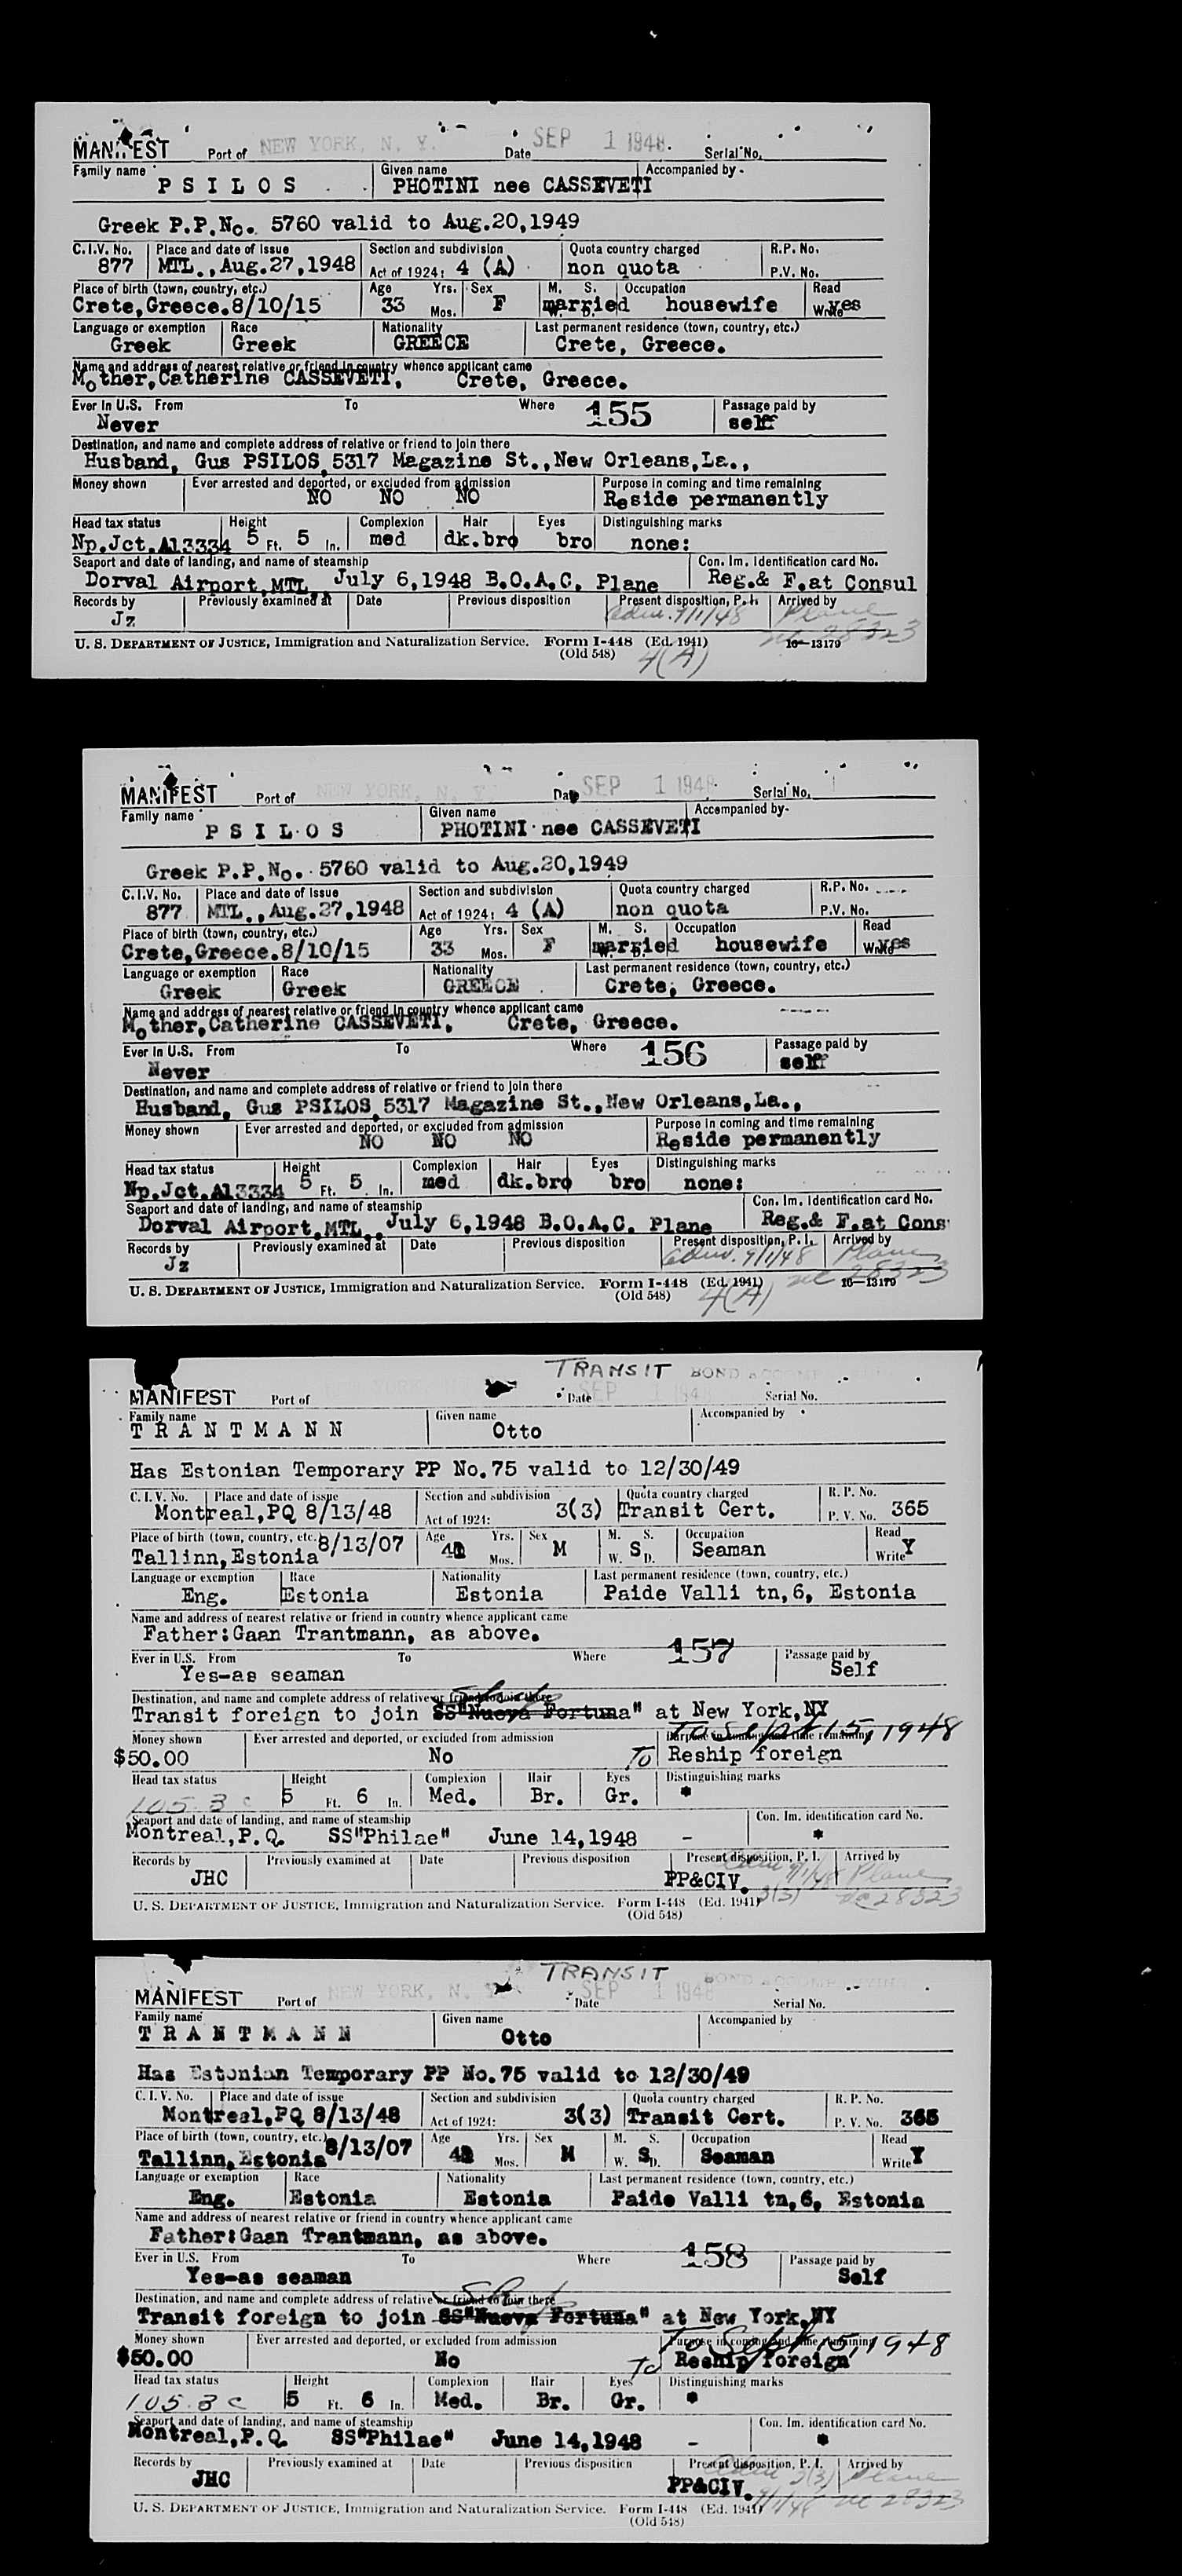 MANIFEST Port of NEW YORK, N. Y. Date SEP 1 1948. Serial No.
Family name Given name Accompanied by
P S I L O S PHOTINI nee CASSEVETI
Greek P.P.No. 5760 valid to Aug.20,1949
C.I.V. No. Place and date of issue Section and subdivision Quota country charged R.P. No.
877 MTL., Aug.27,1948 Act of 1924: 4 (A) non quota P.V. No.
Place of birth (town, country, etc.) Age Yrs. Sex M. S. Occupation Read
Crete,Greece.8/10/15 33 Mos. F married housewife Write yes
Language or exemption Race Nationality Last permanent residence (town, country, etc.)
Greek Greek GREECE Crete, Greece.
Name and address of nearest relative or friend in country whence applicant came
Mother,Catherine CASSEVETI, Crete, Greece.
Ever in U.S. From To Where 155 Passage paid by
Never self
Destination, and name and complete address of relative or friend to join there
Husband, Gus PSILOS 5317 Magazine St.,New Orleans,La.,
Money shown Ever arrested and deported, or excluded from admission Purpose in coming and time remaining
NO NO NO Reside permanently
Head tax status Height Complexion Hair Eyes Distinguishing marks
Np.Jct.A13334 5 Ft. 5 In. med dk.bro bro none:
Seaport and date of landing, and name of steamship Con. Im. Identification card No.
Dorval Airport,MTL, July 6,1948 B.O.A.C. Plane Reg.& F.at Consul
Records by Previously examined at Date Previous disposition Present disposition, P. I. Arrived by
Jz adm. 9/1/48 Plane
nc 28323
U. S. DEPARTMENT OF JUSTICE, Immigration and Naturalization Service. Form I-448 (Ed. 1941) 16—13179
(Old 548) 4(A)
MANIFEST Port of NEW YORK, N. Y. Date SEP 1 1948. Serial No.
Family name Given name Accompanied by
P S I L O S PHOTINI nee CASSEVETI
Greek P.P.No. 5760 valid to Aug.20,1949
C.I.V. No. Place and date of issue Section and subdivision Quota country charged R.P. No.
877 MTL., Aug.27,1948 Act of 1924: 4 (A) non quota P.V. No.
Place of birth (town, country, etc.) Age Yrs. Sex M. S. Occupation Read
Crete,Greece.8/10/15 33 Mos. F married housewife Write yes
Language or exemption Race Nationality Last permanent residence (town, country, etc.)
Greek Greek GREECE Crete, Greece.
Name and address of nearest relative or friend in country whence applicant came
Mother,Catherine CASSEVETI, Crete, Greece.
Ever in U.S. From To Where 156 Passage paid by
Never self
Destination, and name and complete address of relative or friend to join there
Husband, Gus PSILOS 5317 Magazine St.,New Orleans,La.,
Money shown Ever arrested and deported, or excluded from admission Purpose in coming and time remaining
NO NO NO Reside permanently
Head tax status Height Complexion Hair Eyes Distinguishing marks
Np.Jct.A13334 5 Ft. 5 In. med dk.bro bro none:
Seaport and date of landing, and name of steamship Con. Im. Identification card No.
Dorval Airport,MTL., July 6,1948 B.O.A.C. Plane Reg.& F.at Cons
Records by Previously examined at Date Previous disposition Present disposition, P. I. Arrived by
Jz adm. 9/1/48 Plane
nc 28323
U. S. DEPARTMENT OF JUSTICE, Immigration and Naturalization Service. Form I-448 (Ed. 1941) 16—13179
(Old 548) 4(A)
TRANSIT BOND
MANIFEST Port of Date SEP 1 1948 Serial No.
Family name Given name Accompanied by
T R A N T M A N N Otto
Has Estonian Temporary PP No.75 valid to 12/30/49
C. I. V. No. Place and date of issue Section and subdivision Quota country charged R. P. No.
Montreal,PQ 8/13/48 Act of 1924: 3(3) Transit Cert. P. V. No. 365
Place of birth (town, country, etc.) Age Yrs. Sex M. S. Occupation Read
Tallinn,Estonia 8/13/07 Mos. M W. S D. Seaman Write Y
Language or exemption Race Nationality Last permanent residence (town, country, etc.)
Eng. Estonia Estonia Paide Valli tn,6, Estonia
Name and address of nearest relative or friend in country whence applicant came
Father:Gaan Trantmann, as above.
Ever in U.S. From To Where 157 Passage paid by
Yes-as seaman Self
Destination, and name and complete address of relative or friend to join there
Transit foreign to join SS"Nueva Fortuna" at New York,NY
To Sept 15, 1948
Money shown Ever arrested and deported, or excluded from admission Purpose in coming and time remaining
$50.00 No To Reship foreign
Head tax status Height Complexion Hair Eyes Distinguishing marks
105.3 c 5 Ft. 6 In. Med. Br. Gr. *
Seaport and date of landing, and name of steamship Con. Im. identification card No.
Montreal,P.Q. SS"Philae" June 14,1948 - *
Records by Previously examined at Date Previous disposition Present disposition, P. I. Arrived by
JHC PP&CIV. adm 9/1/48 Plane
3(3) nc 28323
U. S. DEPARTMENT OF JUSTICE, Immigration and Naturalization Service. Form I-448 (Ed. 1941)
(Old 548)
TRANSIT BOND
MANIFEST Port of NEW YORK, N. Y. Date SEP 1 1948 Serial No.
Family name Given name Accompanied by
T R A N T M A N N Otto
Has Estonian Temporary PP No.75 valid to 12/30/49
C. I. V. No. Place and date of issue Section and subdivision Quota country charged R. P. No.
Montreal,PQ 8/13/48 Act of 1924: 3(3) Transit Cert. P. V. No. 365
Place of birth (town, country, etc.) Age Yrs. Sex M. S. Occupation Read
Tallinn,Estonia 8/13/07 Mos. M W. S D. Seaman Write Y
Language or exemption Race Nationality Last permanent residence (town, country, etc.)
Eng. Estonia Estonia Paide Valli tn,6, Estonia
Name and address of nearest relative or friend in country whence applicant came
Father:Gaan Trantmann, as above.
Ever in U.S. From To Where 158 Passage paid by
Yes-as seaman Self
Destination, and name and complete address of relative or friend to join there
Transit foreign to join SS"Nueva Fortuna" at New York,NY
To Sept 15, 1948
Money shown Ever arrested and deported, or excluded from admission Purpose in coming and time remaining
$50.00 No To Reship foreign
Head tax status Height Complexion Hair Eyes Distinguishing marks
105.3 c 5 Ft. 6 In. Med. Br. Gr. *
Seaport and date of landing, and name of steamship Con. Im. identification card No.
Montreal,P.Q. SS"Philae" June 14,1948 - *
Records by Previously examined at Date Previous disposition Present disposition, P. I. Arrived by
JHC PP&CIV. adm 3(3) Plane
9/1/48 nc 28323
U. S. DEPARTMENT OF JUSTICE, Immigration and Naturalization Service. Form I-448 (Ed. 1941)
(Old 548)